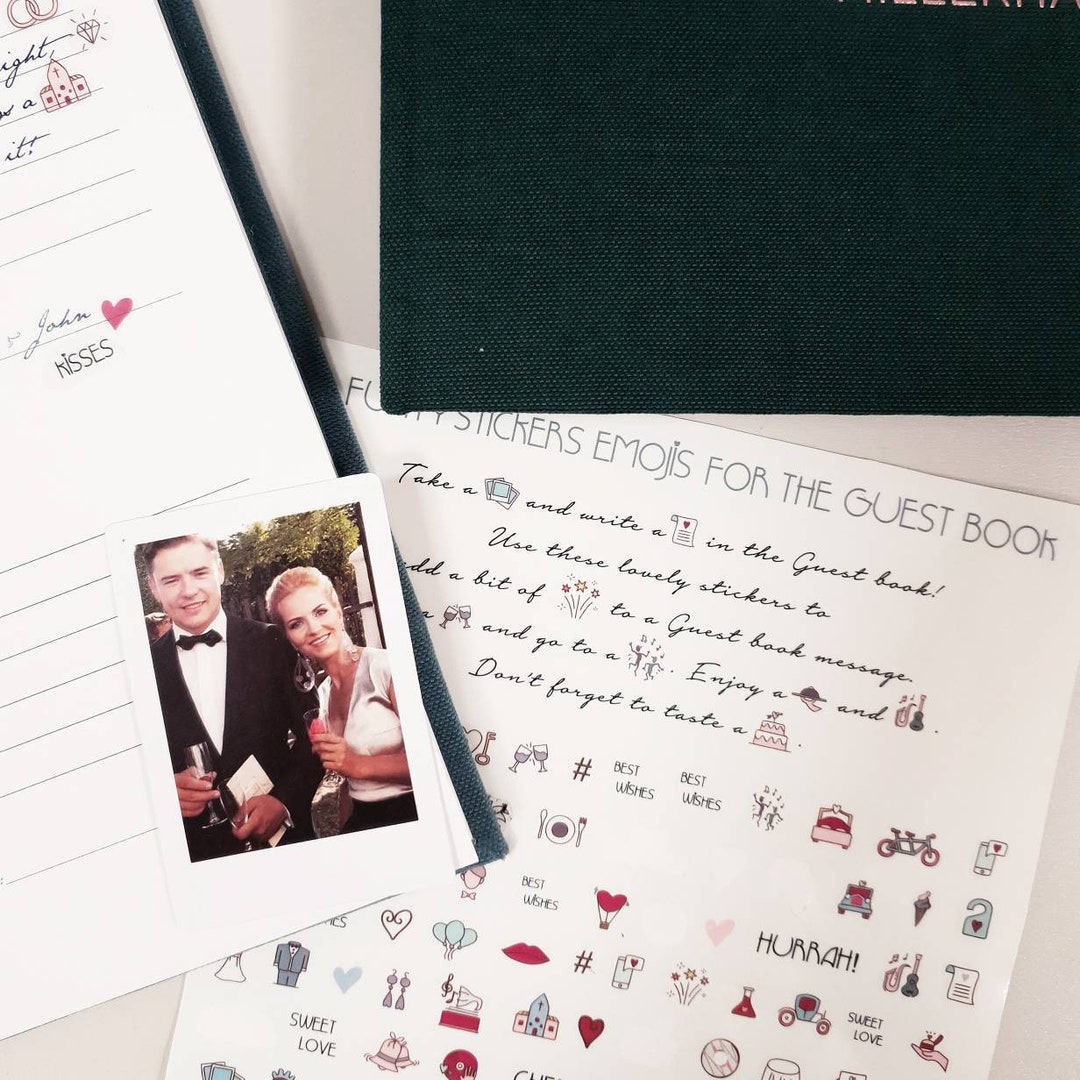 it!
John
KISSES
STICKERS EMOJIS FOR THE GUEST BOOK
Take a and write a in the Guest book!
Use these lovely stickers to
a bit of to a Guest book message.
and go to a . Enjoy a and .
Don't forget to taste a .
# BEST WISHES BEST WISHES
BEST WISHES
HURRAH!
#
SWEET LOVE
SWEET LOVE